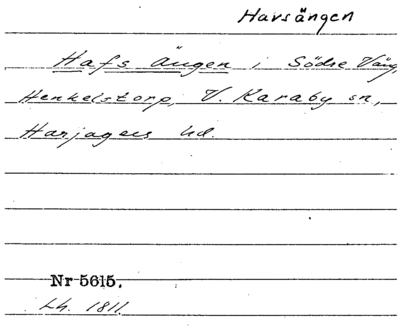 Havsängen
Hafs ängen i Södre Väng,
Henkelstorp, V. Karaby sn,
Harjagers hd.
Nr 5615.
Lh. 1811.